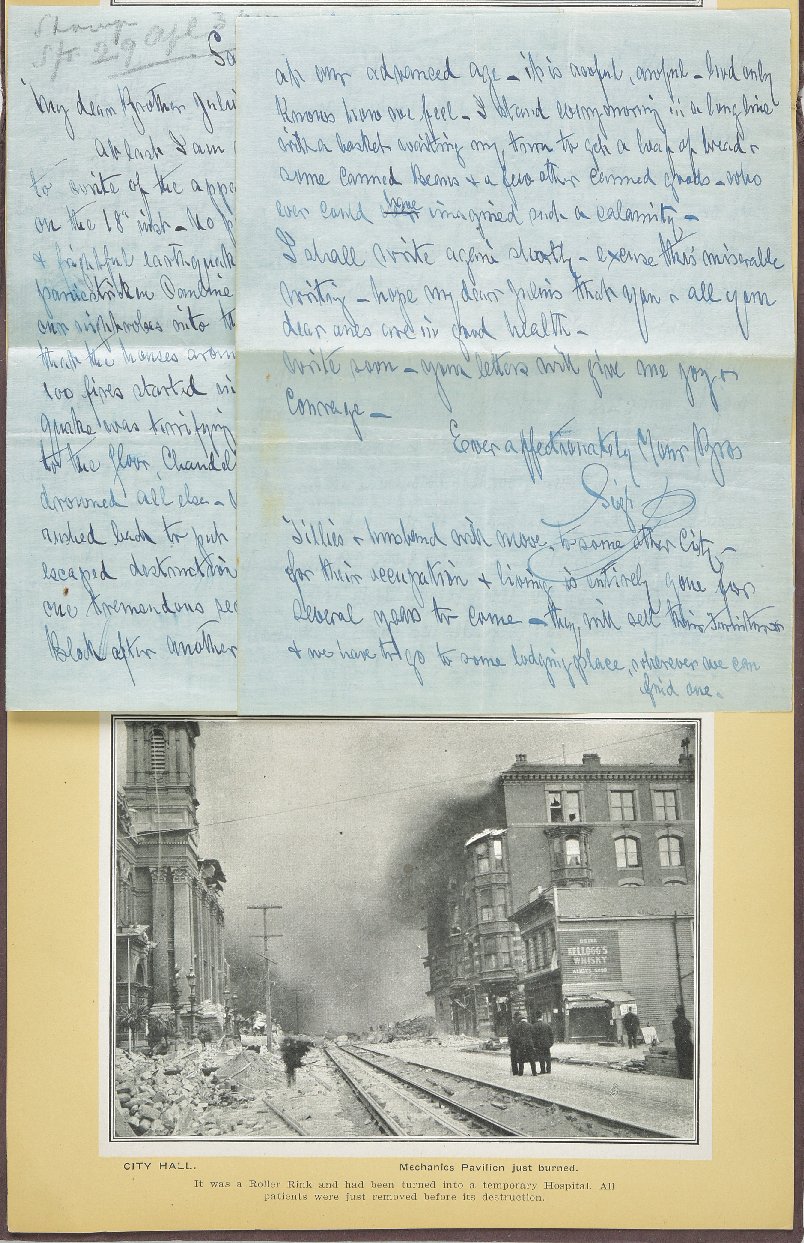 29 Apl 3
My dear Brother Juli
At last I am
to write of the appa
on the 18" inst - No
& frightful earthquak
panic striken Santine
our nighrobes into th
that the houses aroun
100 fires started in
quake was terrifying
to the floor, Chandel
drowned all else -
rushed back to put
escaped destruction
one tremendous se
Block after another
at my advanced age - it is awful, awful - God only
Knows how we feel - I stand every morning in a long line
with a basket waiting my turn to get a loaf of bread &
some canned Beans & a few other canned goods - who
ever could have imagined such a calamity -
I shall write again shortly - excuse this miserable
writing - hope my dear Julius that you & all your
dear ones are in good health -
Write soon - your letters will give me joy &
Courage -
Ever affectionately Your Bros
Sieg
Tillies & husband will move to some other City -
for their occupation & living is entirely gone for
several years to come - they will sell their Furniture
& we have to go to some lodging place, wherever we can
find one.
KELLOGG'S
WHISKY
CITY HALL.
Mechanics Pavilion just burned.
It was a Roller Rink and had been turned into a temporary Hospital. All
patients were just removed before its destruction.